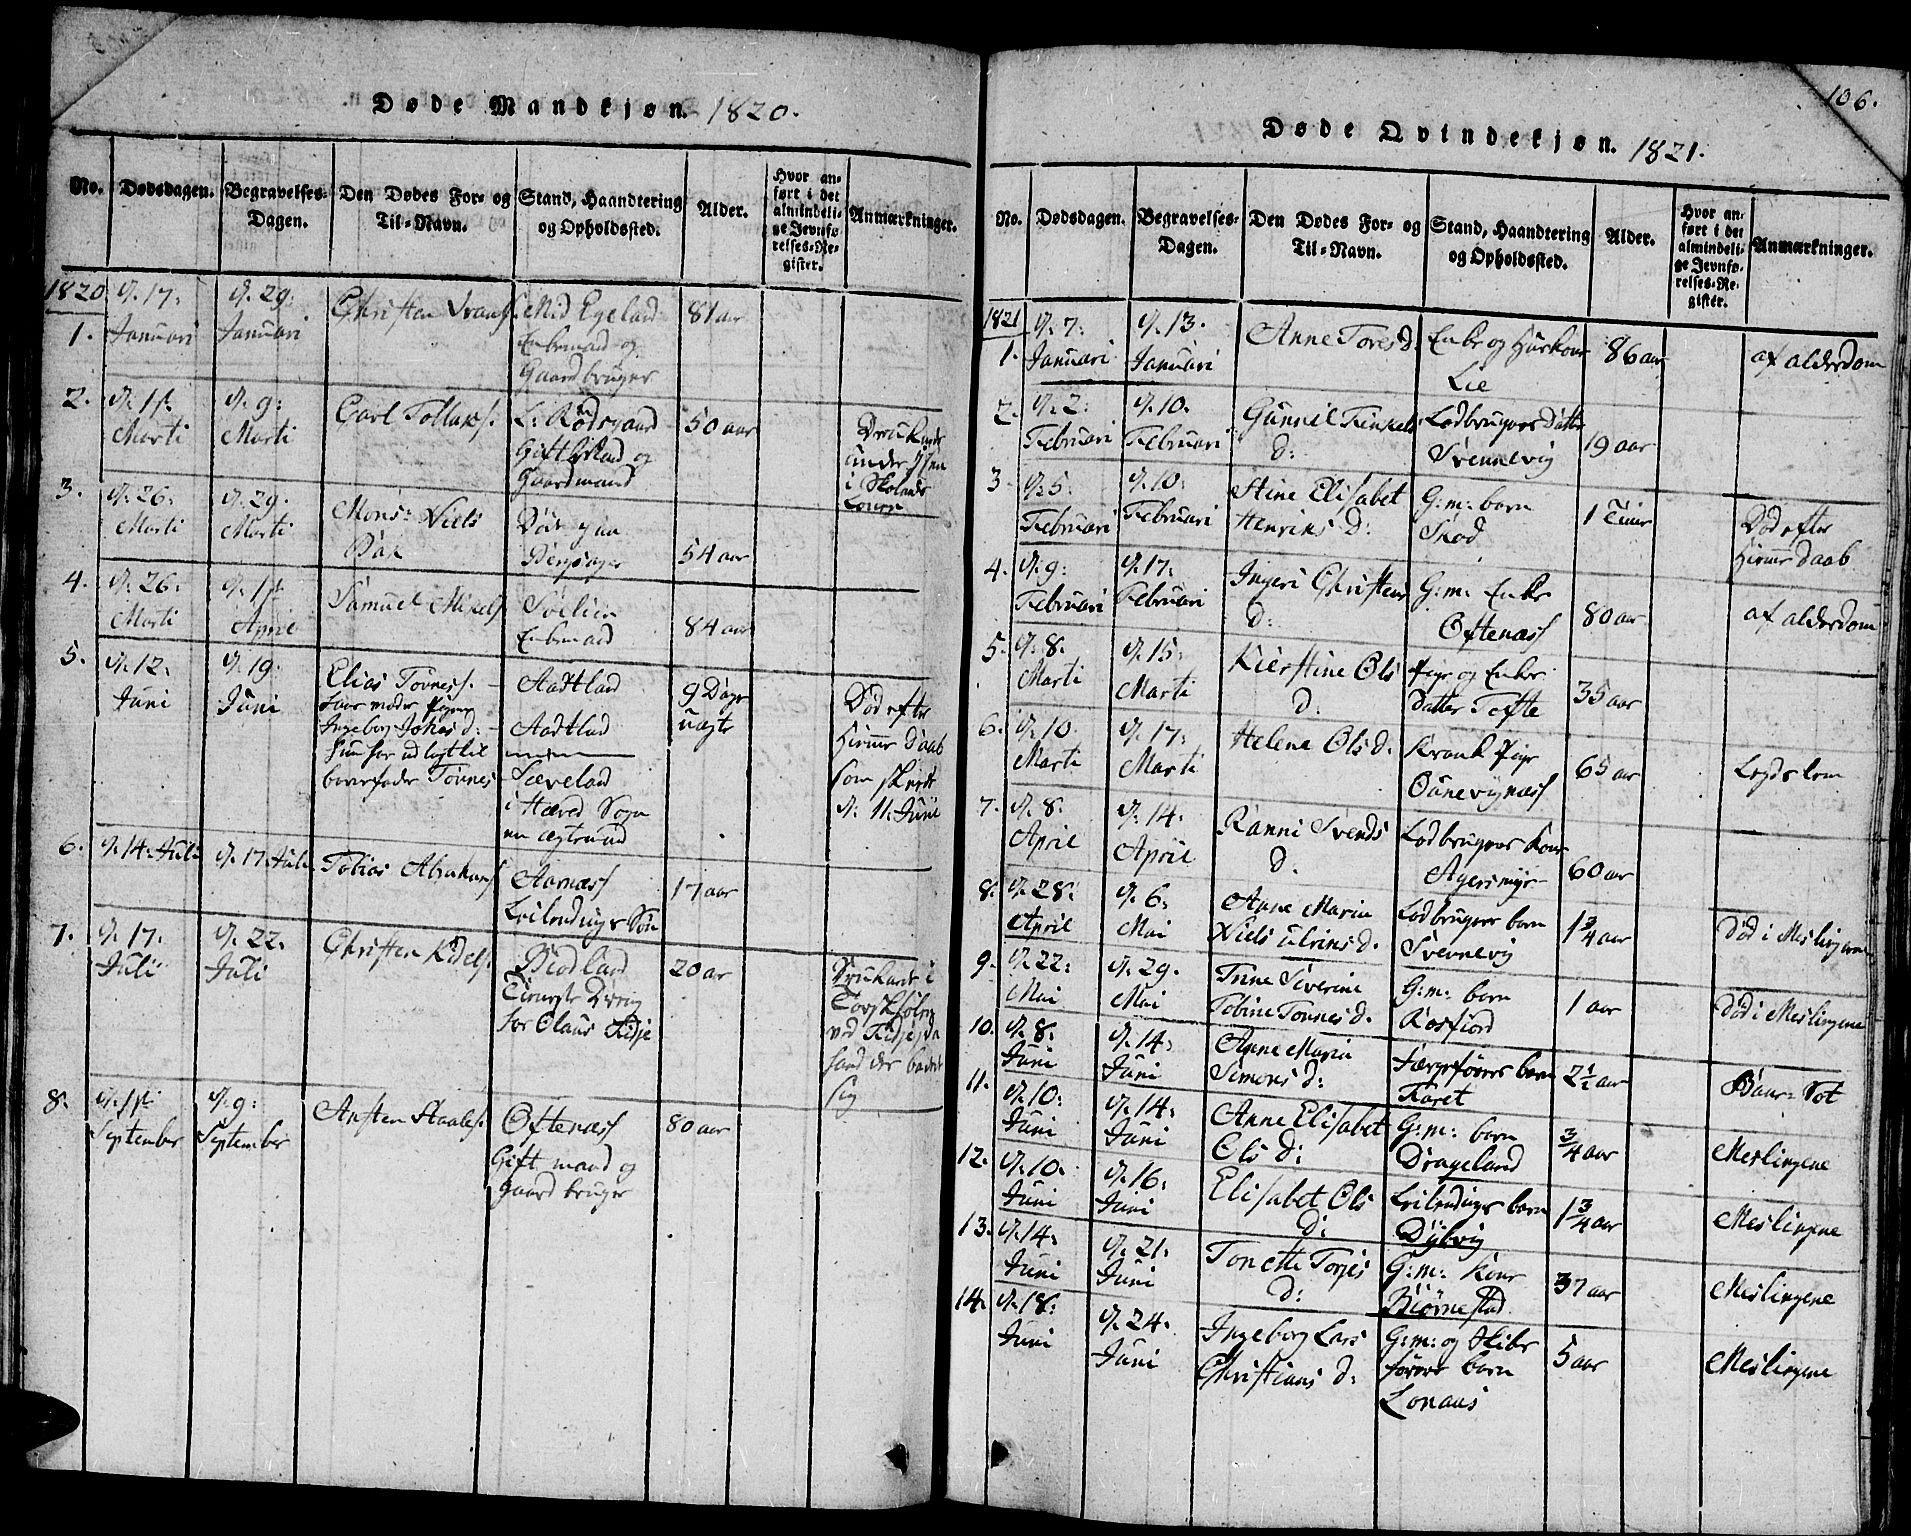 Døde Mandkjøn. 1820.
No. Dødsdagen. Begravelses-Dagen. Den Dødes For- og Til-Navn. Stand, Haandtering og Opholdssted. Alder. Hvor anført i det almindelige Jevnførelses-Register. Anmærkninger.
1820
1. d. 17: Januari d. 29: Januari Christen N: d Egeland Enkemand og Gaardbruger 81 aar
2. d. 1ste Marti d. 9: Marti Carl Tollaks. Gift Mand og Gaardmand 50 aar Druknede under Isen
3. d. 26: Marti d. 29. Marti Mons: Niels 54 aar
4. d. 26: Marti d. 1ste April Samuel Mikels. Enkemand 84 aar
5. d. 12: Juni d. 19. Juni Elias Tønnes. Ingeborg Johns d: barnefader Tønnes Aadtland Aadtland i Hæred Sogn 9 Dage uægte Død efter Hiemme Daab som skeede d. 11. Junii
6. d. 14. Juli d. 17. Juli Tobias Abrahams. Aarnæss Leilendings Søn 17 aar
7. d. 17. Juli d. 22. Juli Christen Kidels. Biodland Tieneste Dreng for Olaus 20 aar Druknede i ved der badede sig
8. d. 1ste September d. 9: September Ansten Staales. Oftenæss Gift mand og gaard bruger 80 aar
106.
Døde Qvindekjøn. 1821.
No. Dødsdagen. Begravelses-Dagen. Den Dødes For- og Til-Navn. Stand, Haandtering og Opholdssted. Alder. Hvor anført i det almindelige Jevnførelses-Register. Anmærkninger.
1821
1. d. 7: Januari d. 13. Januari Anne Tores d. Enke og Huuskone Lie 86 aar af alderdom
2. d. 2: Februari d. 10. Februari Gunnil Terkels d: Lodbrugers Datter Svennevig 19 aar
3. d. 5: Februari d. 10. Februari Stine Elisabet Henriks D: G: m: barn Skod 1 Time Død efter Hiemme Daab
4. d. 9: Februari d. 17: Februari Ingeri Christens D: G: m: Enke Oftenæss 80 aar af alderdom
5. d. 8. Marti d. 15: Marti Kierstine Ols D. Pige og Enke Datter Tofte 35 aar
6. d. 10 Marti d. 17: Marti Helene Ols d. Krank Pige Bånevignæss 65 aar Legdslem
7. d. 8. April d. 14. April Ranni Svends D. Lodbrugers Kone Agersmyr 60 aar
8. d. 28: April d. 6. Mai Anne Maria Niels Ulrins d. Lodbrugers barn Svennevig 1 3/4 aar død i Meslingerne
9. d. 22: Mai d. 29. Mai Trine Severine Tobine Tonnes d. G: m: barn Rosfiord 1 aar død i Meslingene
10. d. 8: Juni d. 14. Juni Anne Maria Simons d: Færgeførers barn Faret 2 1/2 aar Barne-Sot
11. d. 10: Juni d. 14. Juni Anne Elisabet Ols D: G: m: barn Drageland 3/4 aar Meslingene
12. d. 10. Juni d. 16. Juni Elisabet Ols D: Leilendings barn Dybvig 1 3/4 aar Meslingene
13. d. 14. Juni d. 21. Juni Tonette Torjes D: G: m: Kone Biørnestad 37 aar Meslingene
14. d. 18. Juni d. 24. Juni Ingeborg Lars Christians d. G: m: og Skibsførers barn Lonaas 5 aar Meslingene